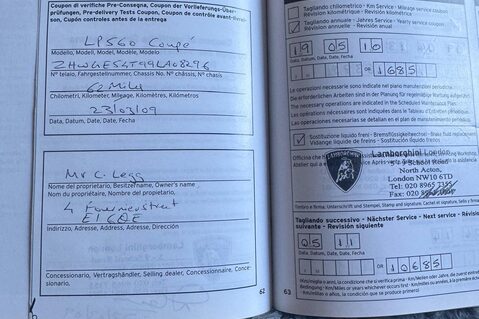 Coupon di verifiche Pre-Consegna, Coupon der Vorlieferungs-Über-
prüfungen, Pre-delivery Tests Coupon, Coupon de contrôle avant-livrai-
son, Cupón controles antes de la entrega
LP560 Coupé
Modello, Modell, Model, Modèle, Modelo
N° telaio, Fahrgestellnummer, Chassis No. N° châssis, N° chasis
62 Miles
Chilometri, Kilometer, Mileage, Kilomètres, Kilómetros
23/03/09
Data, Datum, Date, Date, Fecha
Mr C. Legg
Nome del proprietario, Besitzername, Owner's name
Nom du propriétaire, Nombre del propietario,
4 Fournier street
E1 6QE
Indirizzo, Adresse, Address, Adresse, Dirección
Concessionario, Vertragshändler, Selling dealer, Concessionnaire, Conce-
sionario
62
Tagliando chilometrico - Km Service - Mileage service coupon
Révision kilométrique - Revisión kilométrica
Tagliando annuale - Jahres Service - Yearly service coupon
Révision annuelle - Revisión anual
19 05 10
Data, Datum, Date, Date, Fecha
OR 1685
Le operazioni necessarie sono indicate nel piano manutenzioni periodiche.
Die erforderlichen Arbeiten sind in der Planung für regelmäßige Wartung aufgeführt.
The necessary operations are indicated in the Scheduled Maintenance Plan.
Les opérations nécessaires sont indiquées dans le Tableau d'Entretien périodique.
Las operaciones necesarias se detallan en el plan de manutenciones periódicas.
Sostituzione liquido freni - Bremsflüssigkeitwechsel - Brake fluid replacement
Vidange liquide de freins - Sustitución líquido frenos
Lamborghini London
5 - 9 School Road
North Acton,
London NW10 6TD
Tel: 020 8965
Fax: 020
Timbro e firma, Unterschrift und Stempel, Stamp and signature, Cachet et signature, Sello y firma
63
Tagliando successivo - Nächster Service - Next service - Révision
suivante - Revisión siguiente
05 11
Data, Datum, Date, Date, Fecha
OR 10685